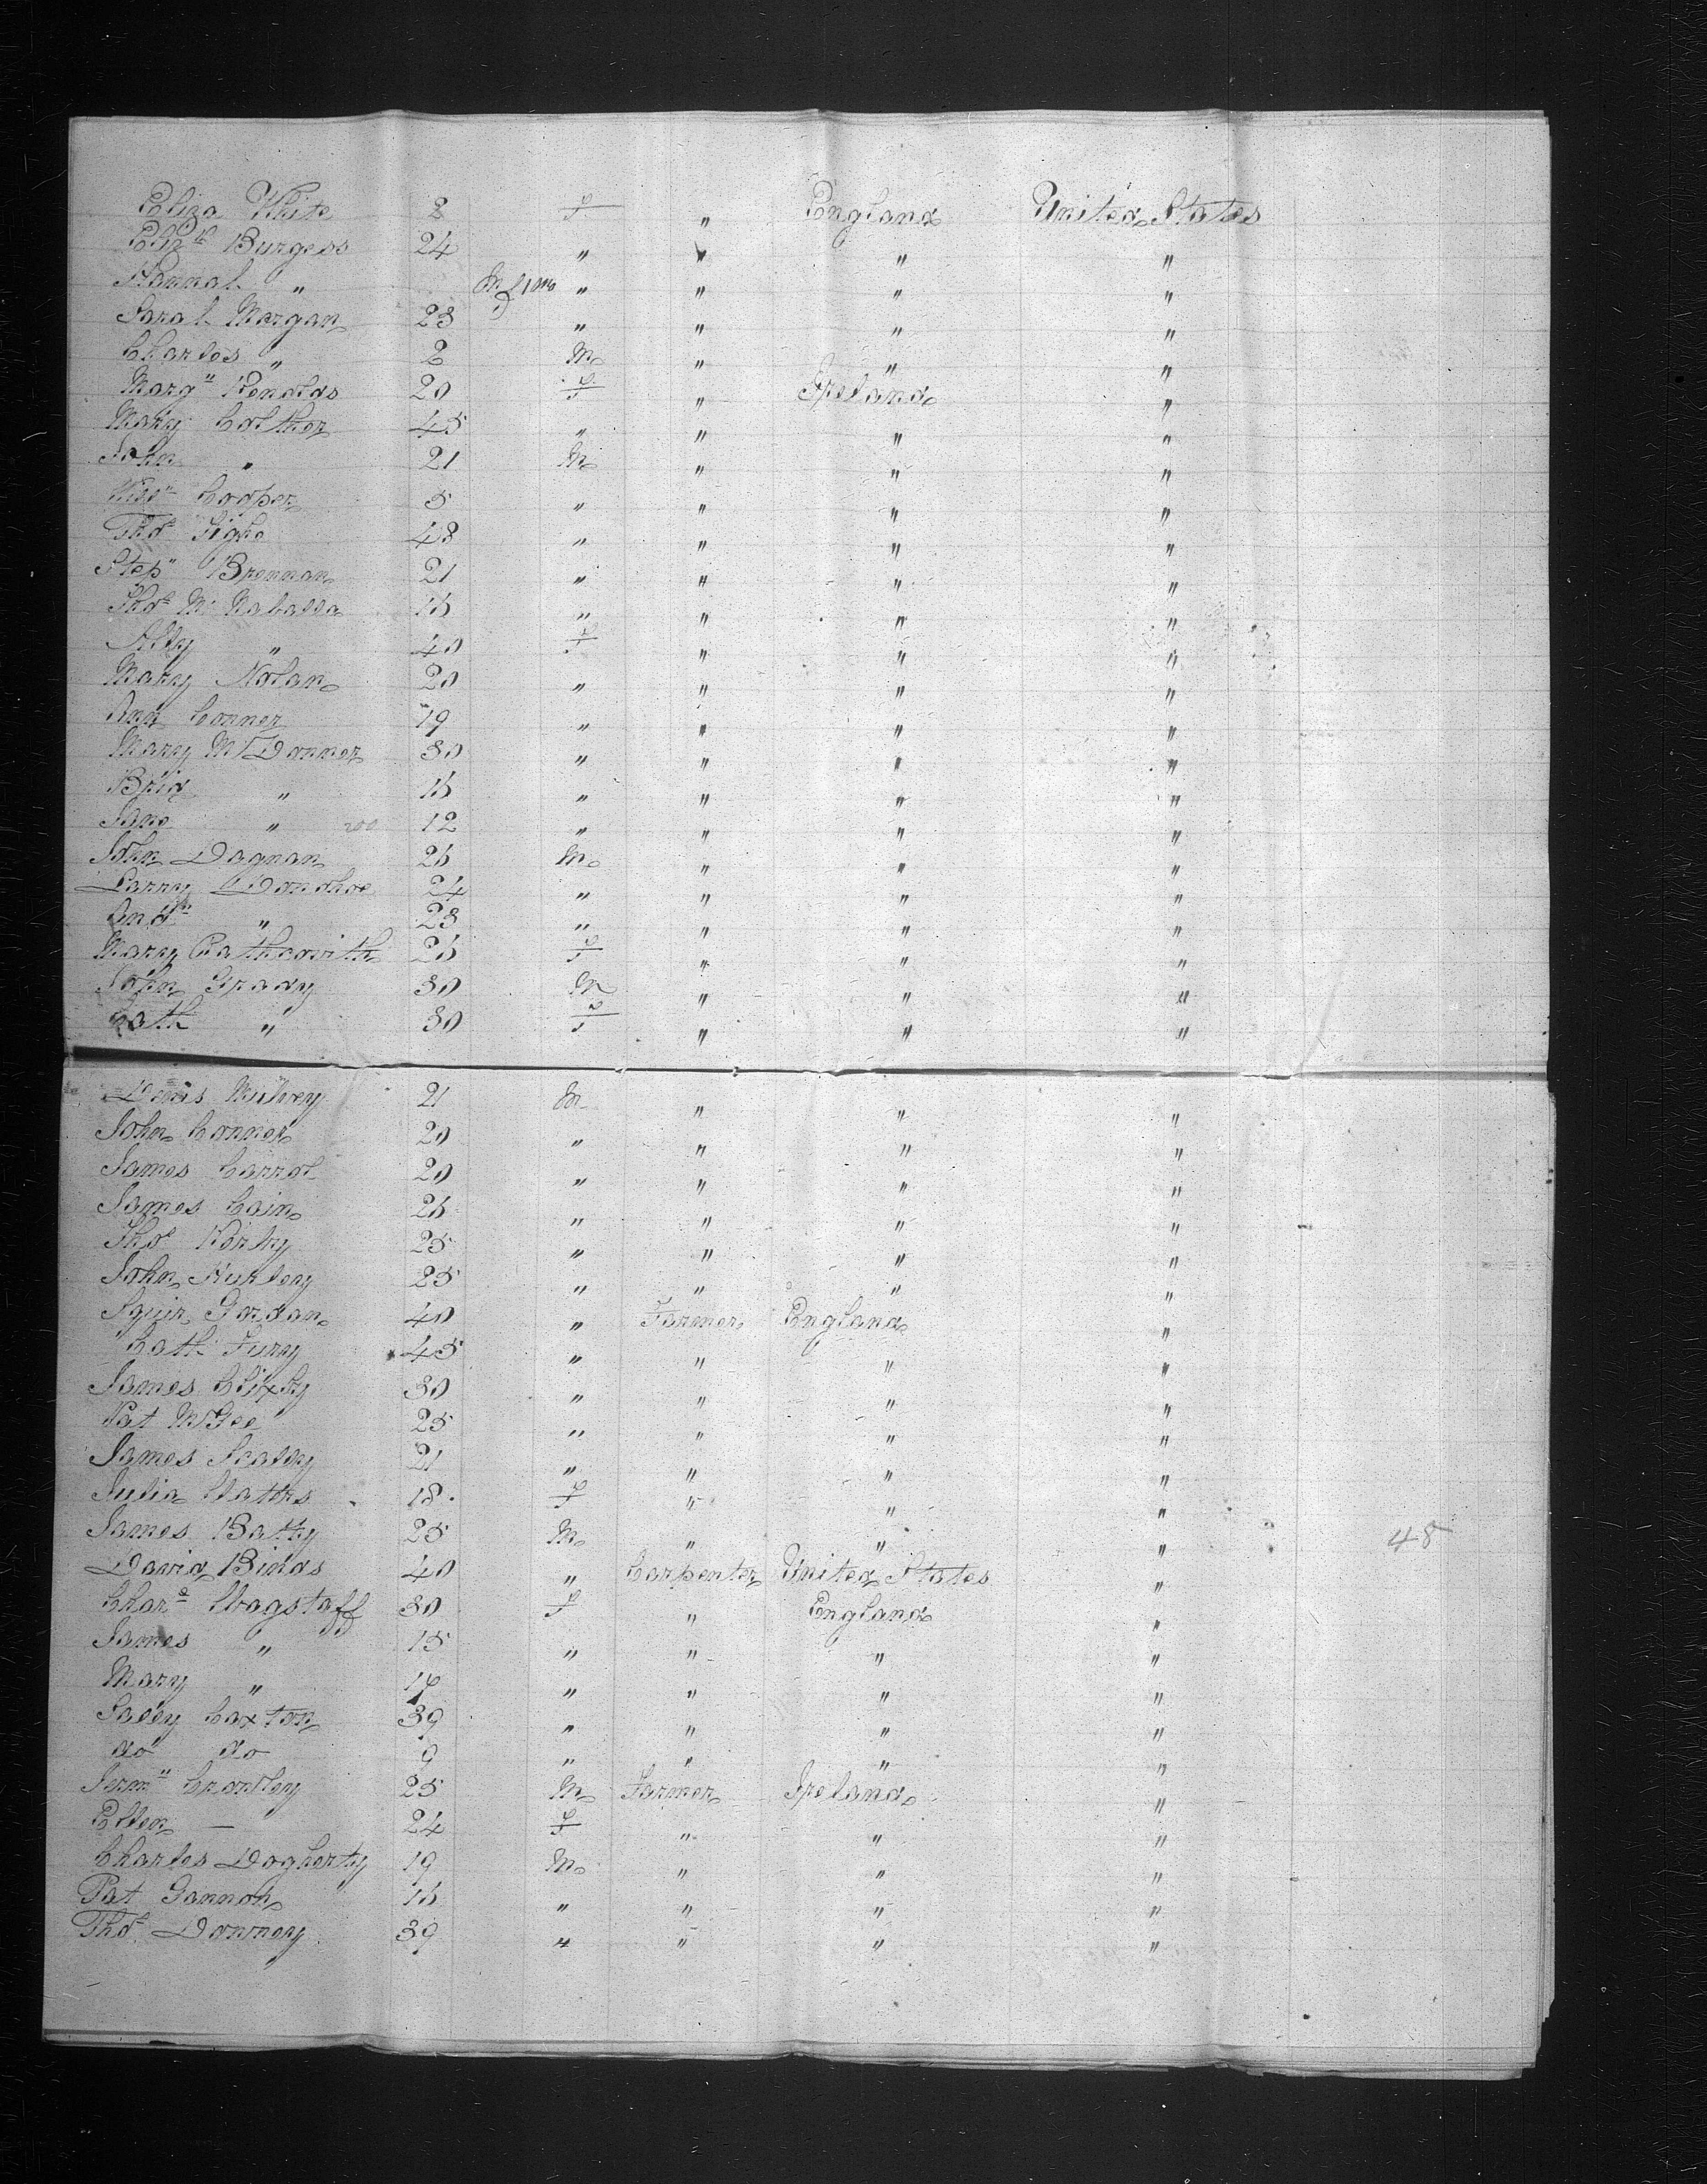 Eliza White 2 F " England United States
Elizth Burgess 24 " " " "
Hannah " Inf 1 mo " " " "
Sarah Morgan 23 " " " "
Charles " 2 M " " "
Margt Renolds 20 F " Ireland "
Mary Colther 45 " " " "
John " 21 M " " "
Cooper 5 " " " "
Thos Tighe 48 " " " "
Stepn Brennan 21 " " " "
Thos 16 " " " "
Ally " 40 F " " "
Mary Nolan 20 " " " "
Ann Conner 19 " " " "
Mary 30 " " " "
Brid " 16 " " " "
Jane " 200 12 " " " "
John Dagnan 26 M " " "
Larry Donohoe 24 " " " "
Andw " 23 " " " "
Mary 26 F " " "
John Grady 30 M " " "
Cath " 30 F " " "
Denis Mulvey 21 M " " "
John Conner 20 " " " "
James Carrol 20 " " " "
James Cain 26 " " " "
Thos Kerby 25 " " " "
John Hurley 25 " " " "
Squir Gordan 40 " Farmer England "
Cath Fury 45 " " " "
James Clixby 30 " " " "
Pat McGee 25 " " " "
James Scally 21 " " " "
Julia Waters 18 F " " "
James Batty 25 M " " " 48
David Binds 40 " Carpenter United States "
Chare Wagstaff 30 F " England "
James " 15 " " " "
Mary " " " " "
Sally Caxton 39 " " " "
do do 9 " " " "
Jermh Crowley 25 M Farmer Ireland "
Ellen — 24 F " " "
Charles Dogherty 19 M " " "
Pat Gannon 16 " " " "
Thos Downey 39 " " " "